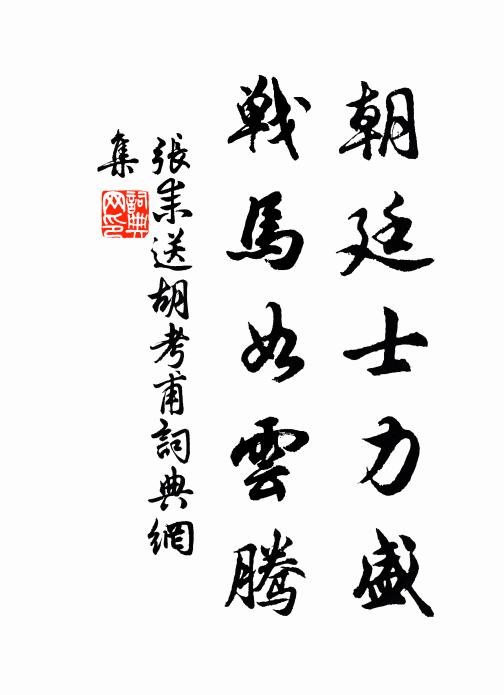 朝廷士力盛
戦馬如雲騰
張耒送胡考甫詞典網
集
詞典网印